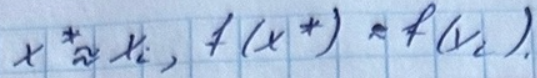 x* ≈ xᵢ, f(x*) ≈ f(xᵢ).